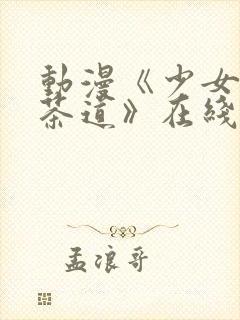 動漫《少女
茶道》在綫
孟浪哥